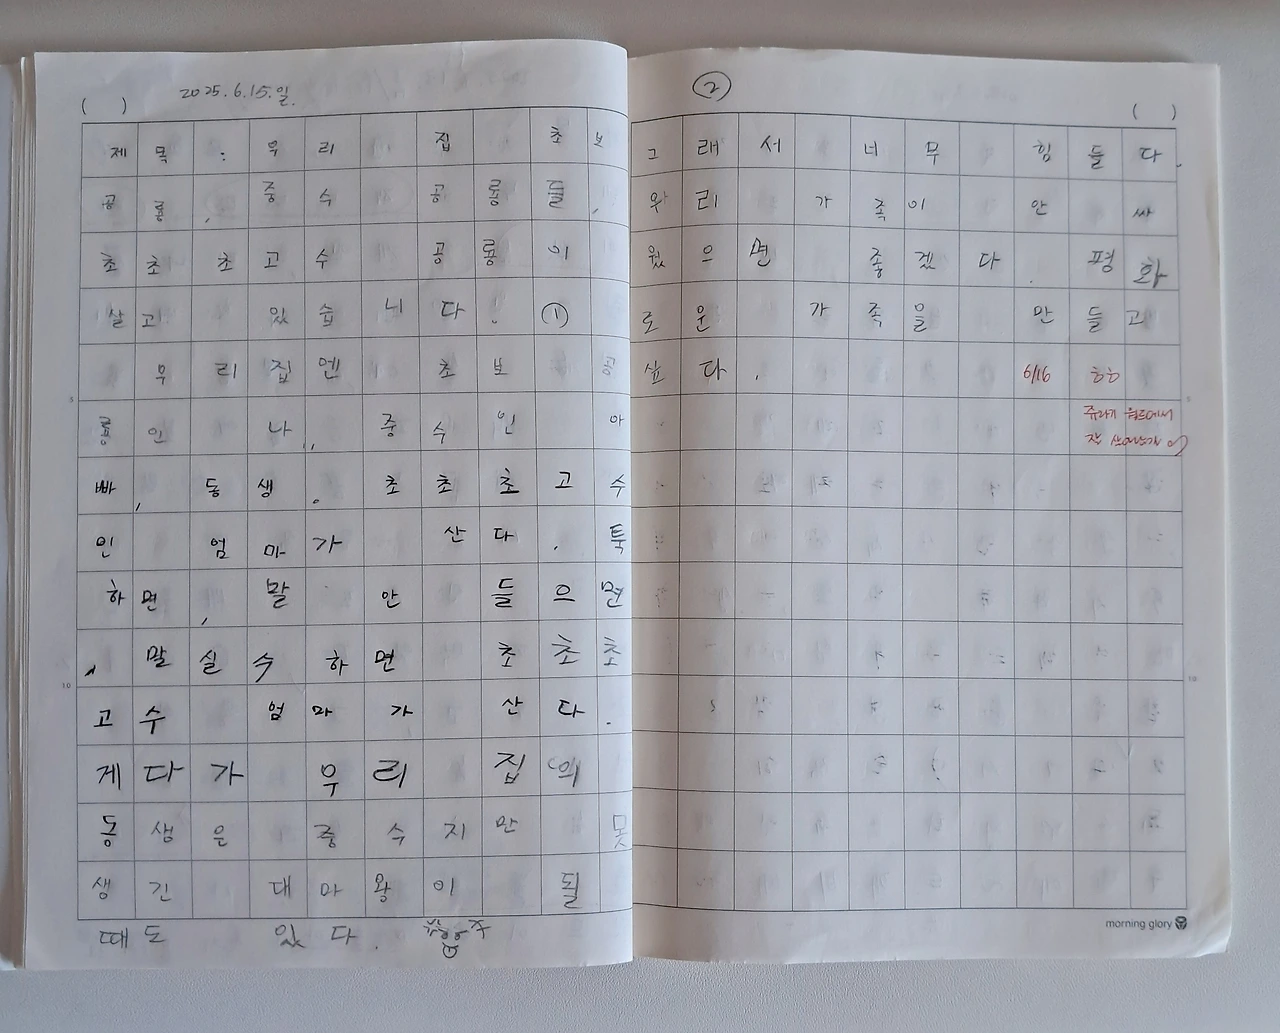 2025.6.15.일.
( )
제목: 우리 집 초보
공룡, 중수 공룡들,
초초초고수 공룡이
살고 있습니다. ①
우리 집엔 초보 공
룡인 나, 중수인 아
빠, 동생. 초초초고수
인 엄마가 산다. 툭
하면, 말 안 들으면
, 말실수하면 초초초
고수 엄마가 산다.
게다가 우리 집의
동생은 중수지만 못
생긴 대마왕이 될
때도 있다.
②
( )
그래서 너무 힘들다.
우리 가족이 안 싸
웠으면 좋겠다. 평화
로운 가족을 만들고
싶다.
6/16
morning glory
5
10
10